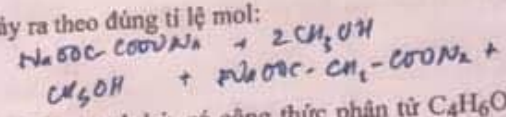 ảy ra theo đúng tỉ lệ mol:
NaOOC-COONa + 2CH3OH
CH3OH + NaOOC-CH2-COONa +
công thức phân tử C4H6O